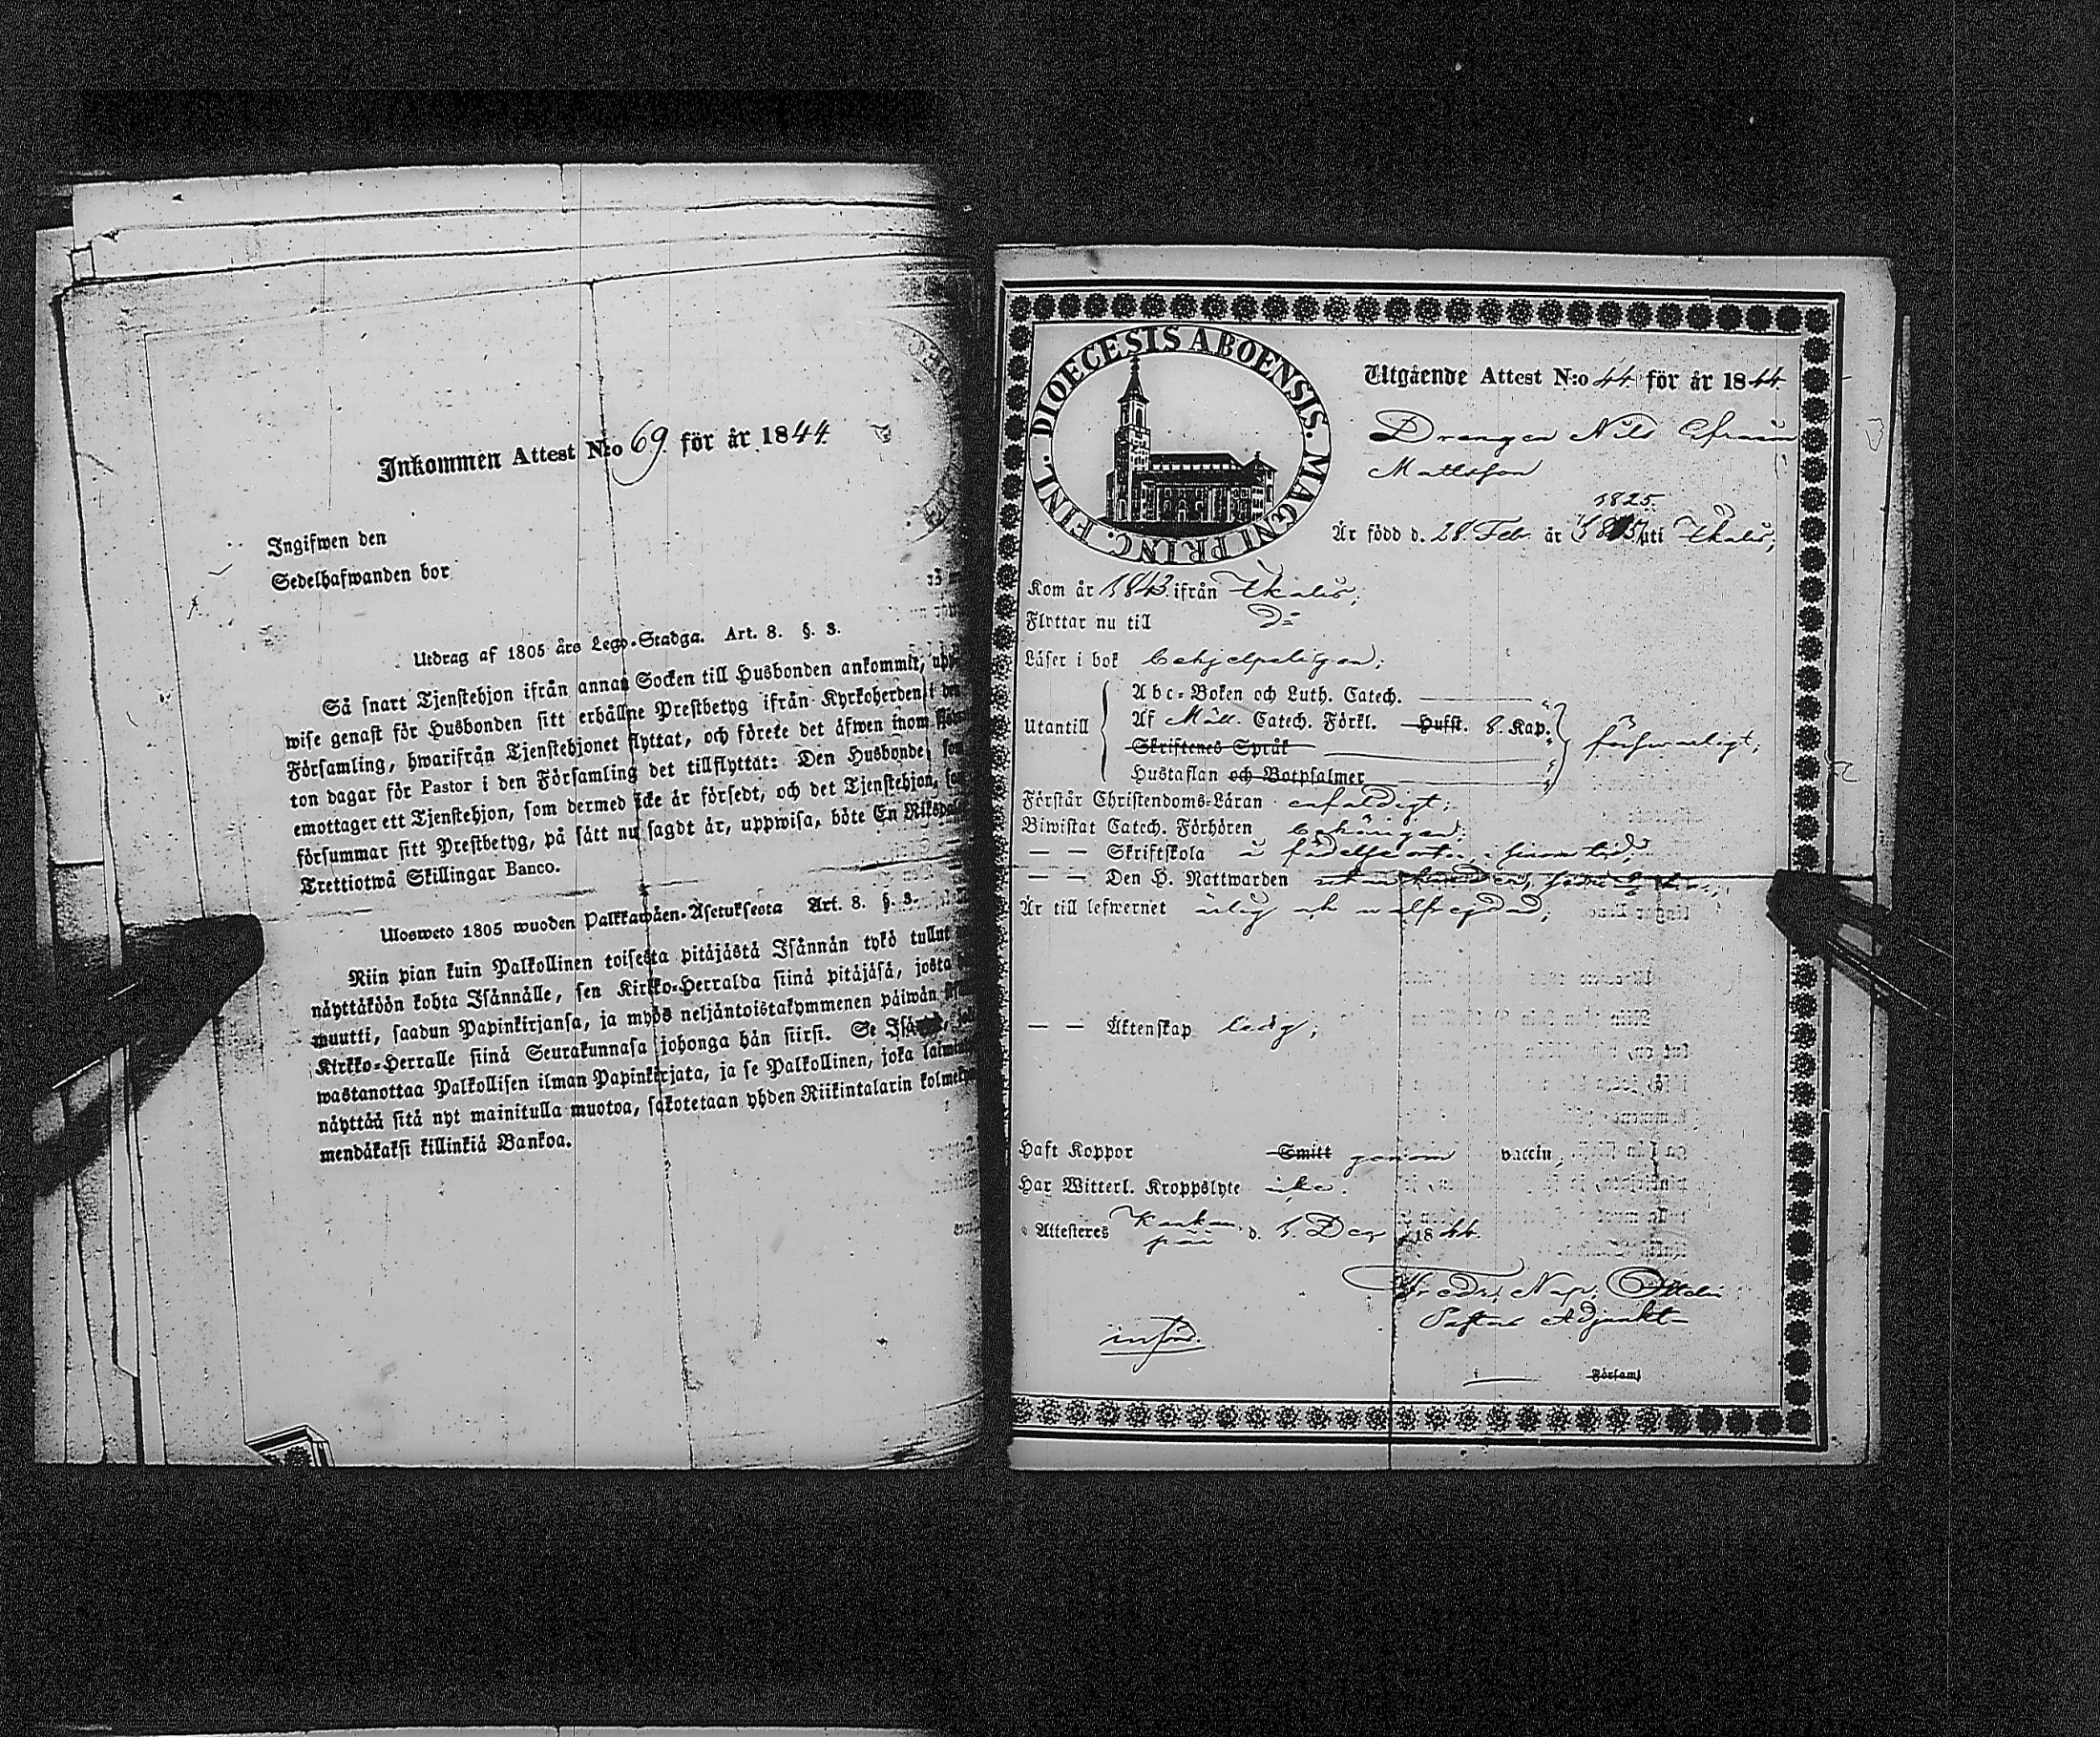 Inkommen Attest N:o 69. för år 1844
Ingifwen den
Sedelhafwanden bor
Utdrag af 1805 års Lego-Stadga. Art. 8. §. 3.
Så snart Tjenstehjon ifrån annan Socken till Husbonden ankommit, upp-
wise genast för Husbonden sitt erhållne Prestbetyg ifrån Kyrkoherden i den
Församling, hwarifrån Tjenstehjonet flyttat, och förete det äfwen inom
ton dagar för Pastor i den Församling det tillflyttat: Den Husbonde, som
emottager ett Tjenstehjon, som dermed icke är försedt, och det Tjenstehjon,
försummar sitt Prestbetyg, på sätt nu sagdt är, uppwisa, böte En Riksdaler
Trettiotwå Skillingar Banco.
Ulosweto 1805 wuoden Palkkawäen-Asetuksesta Art. 8. §. 3.
Niin pian kuin Palkollinen toisesta pitäjästä Isännän tykö tullut
näyttäköön kohta Isännälle, sen Kirkko-Herralda siinä pitäjäsä, josta
muutti, saadun Papinkirjansa, ja myös neljäntoistakymmenen päiwän
Kirkko-Herralle siinä Seurakunnasa johonga hän siirsi. Se
wastanottaa Palkollisen ilman Papinkirjata, ja se Palkollinen, joka
näyttää sitä nyt mainitulla muotoa, sakotetaan yhden Riikintalarin
mendäkaksi killinkiä Bankoa.
DIOECESIS ABOENSIS. MAGNI PRINC. FINL.
Utgående Attest N:o 44 för år 1844
Drengen Nils Efraim
Mattsson
1825.
Är född d. 28 Febr. år uti Ikalis,
Kom år 1843. ifrån Ikalis;
Flyttar nu till D:o
Läser i bok behjelpeligen;
Utantill
Abc-Boken och Luth. Catech.
Af Möll. Catech. Förkl. Hufst. 8. Kap.
Skriftenes Språk
Hustaflan och Botpsalmer
försvarligt;
Förstår Christendoms-Läran enfaldigt;
Biwistat Catech. Förhören behörigen;
— — Skriftskola å födelseorten i sinom tid;
— — Den H. Nattwarden
Är till lefwernet ärlig och wälfrejdad;
— — Äktenskap ledig;
Haft Koppor Smitt genom vaccin,
Har Witterl. Kroppslyte icke.
Attesteres Kankan-
pää d. 1. Dec. 1844.
Fredr. Nap.
Pastors Adjunkt
införd.
i Församl